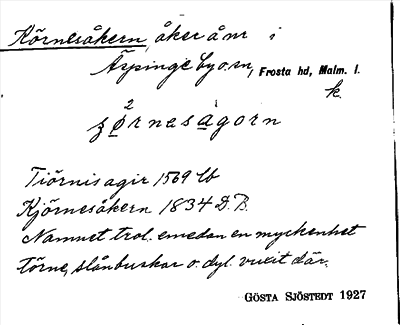 Körnesåkern, åker å nr i
Äspinge by o. sn, Frosta hd, Malm. l.
k.
2
ȥø̱rnesa̱gorn
Tiörnisagir 1569 lb
Kjörnesåkern 1834 D.B.
Namnet trol. emedan en myckenhet
törne, slånbuskar o. dyl. vuxit där.
GÖSTA SJÖSTEDT 1927